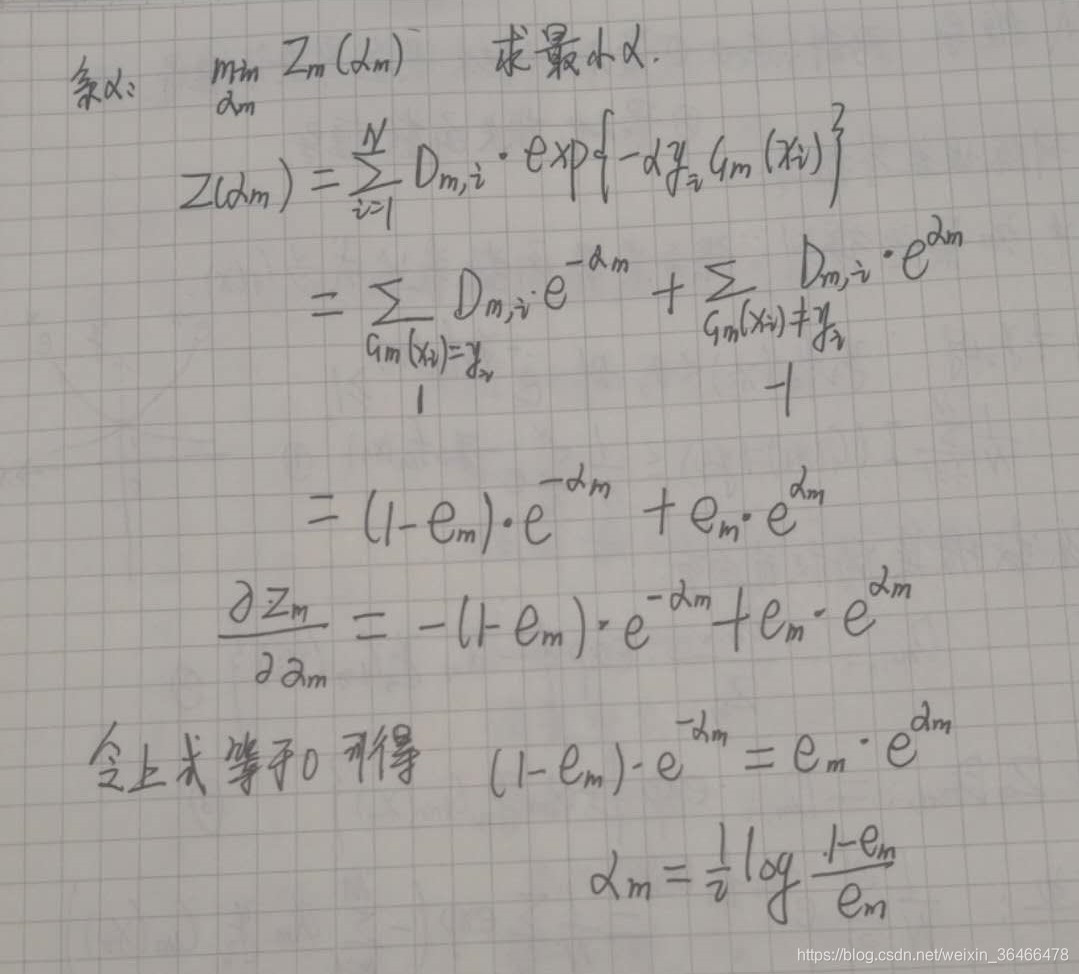 求α: min Zm(αm) 求最小α.
αm
Z(αm) = ∑_{i=1}^{N} D_{m,i} · exp{-αy_i G_m(x_i)}
= ∑_{G_m(x_i)=y_i} D_{m,i} · e^{-α_m} + ∑_{G_m(x_i)≠y_i} D_{m,i} · e^{α_m}
1 -1
= (1-e_m) · e^{-α_m} + e_m · e^{α_m}
∂Z_m / ∂α_m = -(1-e_m) · e^{-α_m} + e_m · e^{α_m}
令上式等于0 可得 (1-e_m) · e^{-α_m} = e_m · e^{α_m}
α_m = 1/2 log (1-e_m)/e_m
https://blog.csdn.net/weixin_36466478